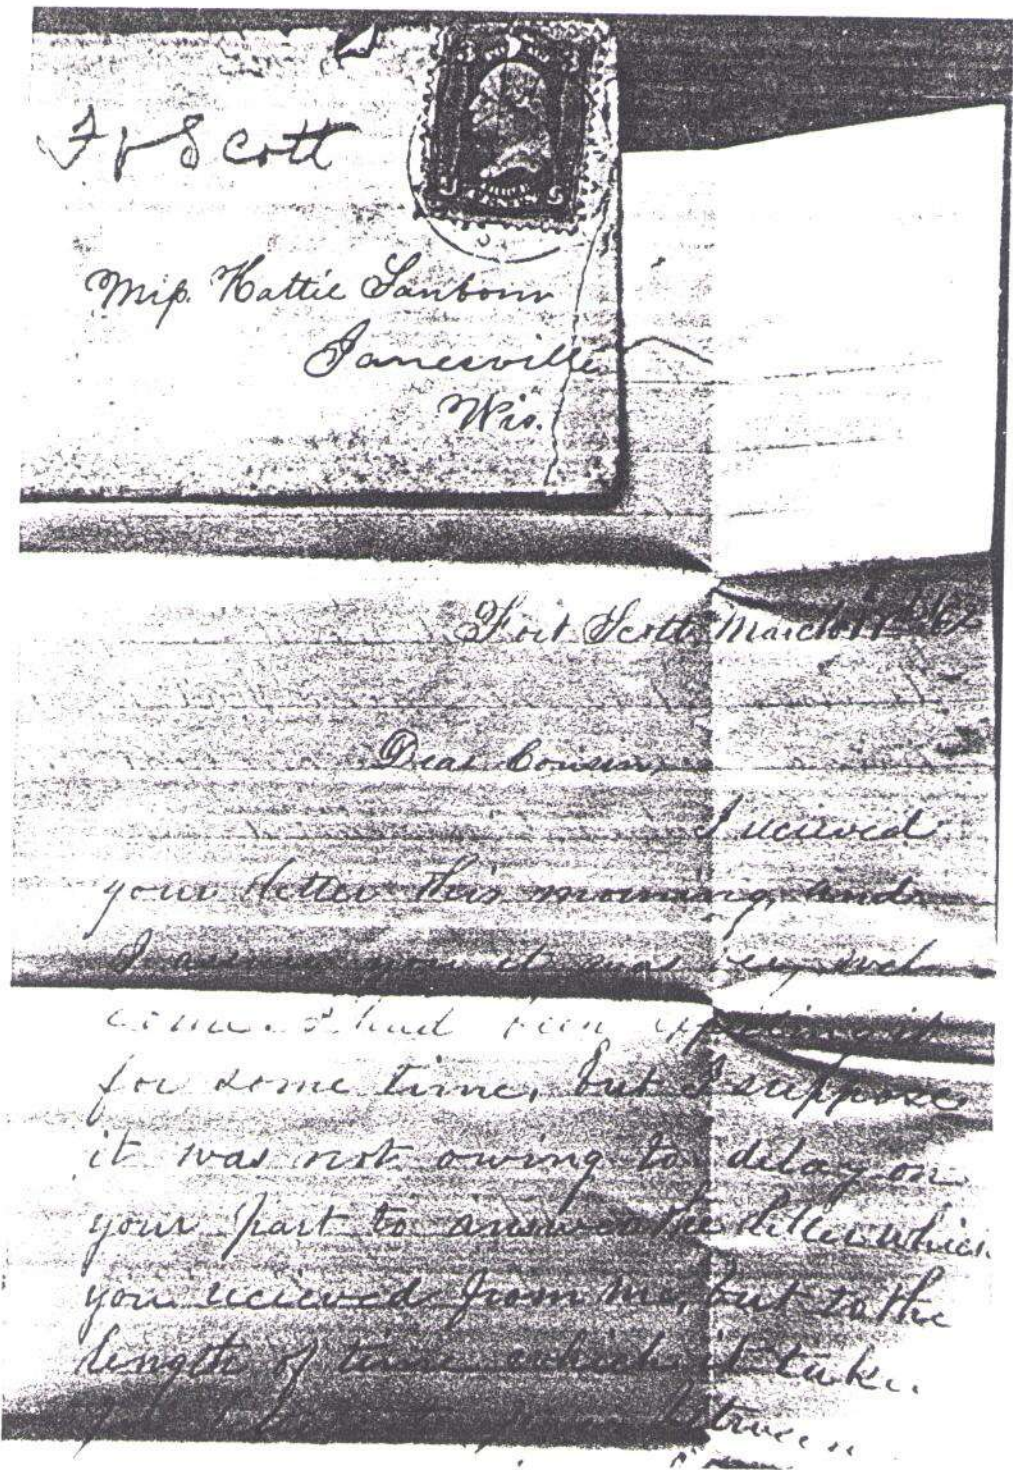 Ft Scott
Miss. Hattie Sanborn
Janesville
Wis.
Fort Scott March
Dear Cousin,
I recieved
your letter this morning, and
I you it was
come. I had been expecting it
for some time, but I suppose
it was not owing to delay on
your part to answer the letter which
you recieved from me, but to the
length of time which it takes
between